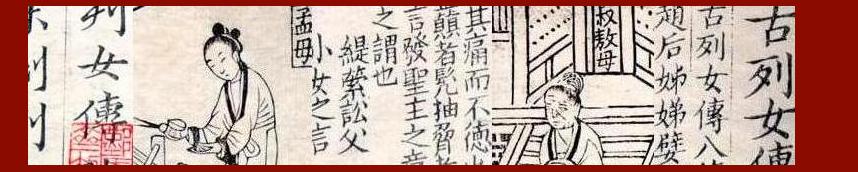 古列女傳
古列女傳八
趙后姊娣嬖
叔敖母
其痛而不德
顛者髡抽脅
言發聖主之
之謂也
緹縈訟父
小女之言
孟母
列女傳